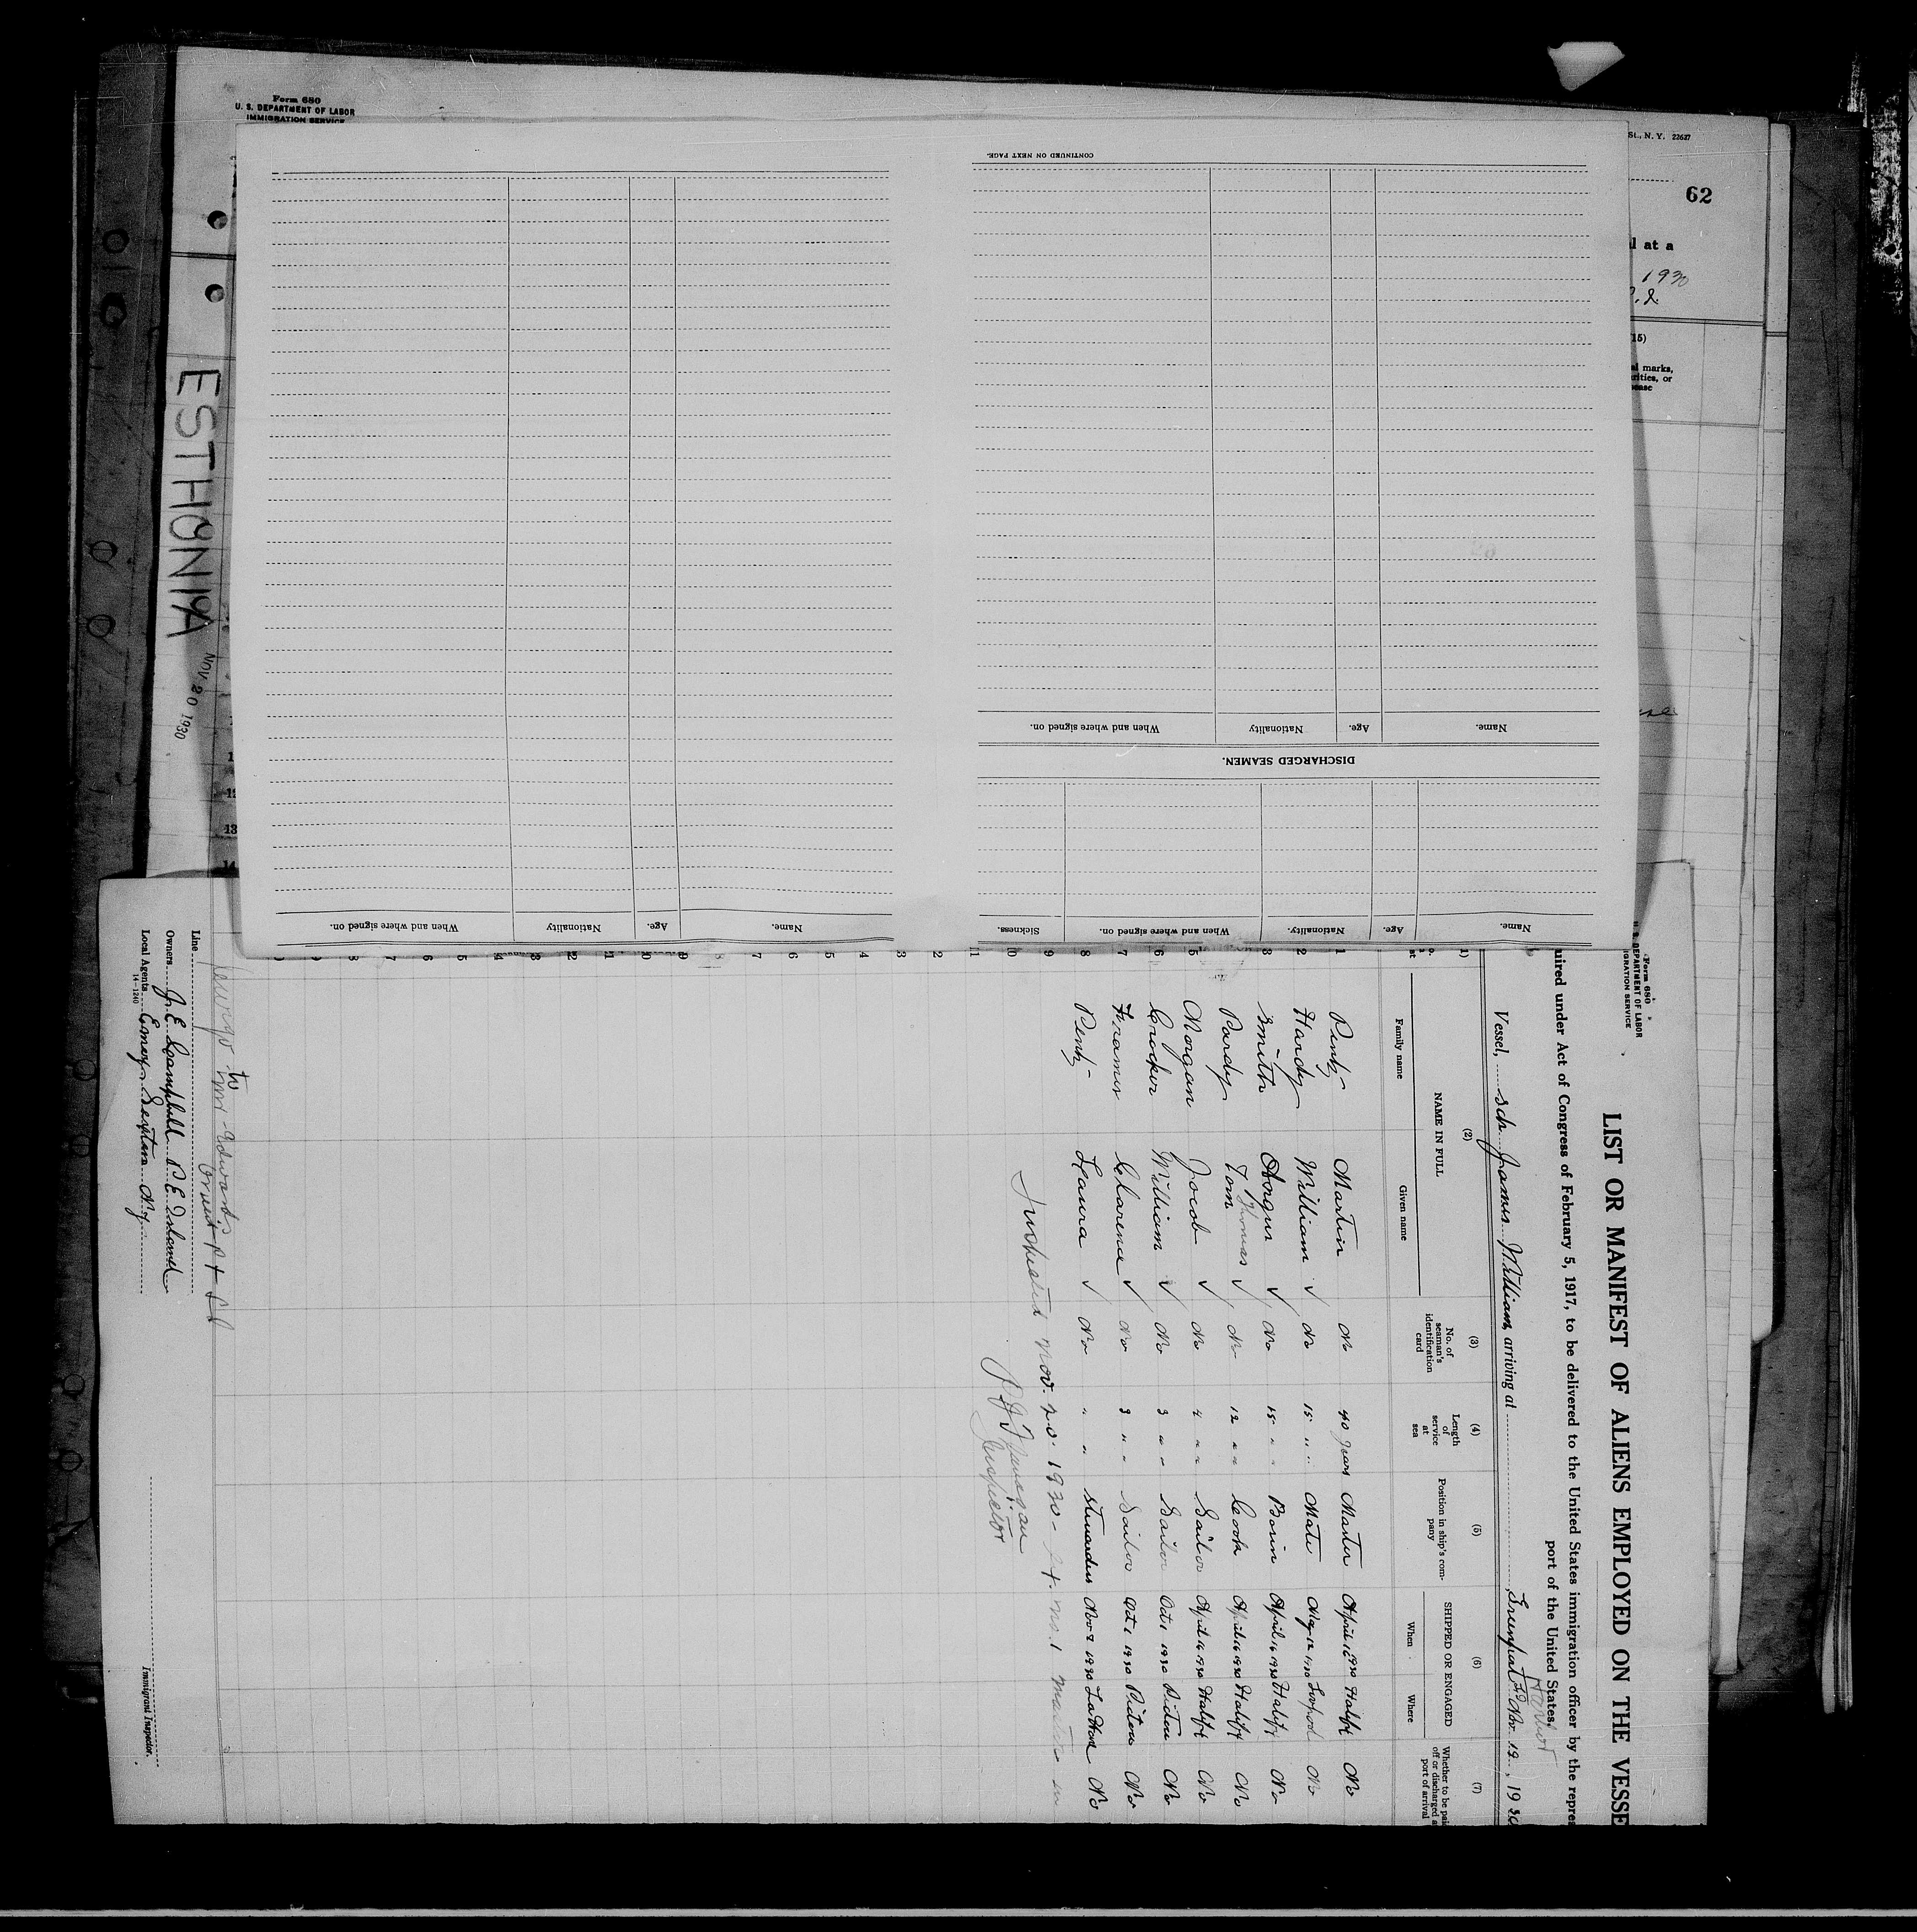 Form 680
U. S. DEPARTMENT OF LABOR
IMMIGRATION SERVICE
St., N. Y. 22627
62
l at a
1930
15)
al marks,
arities, or
sease
ESTHONIA
NOV 20 1930
12
13
14
Name. Age. Nationality. When and where signed on. Sickness.
DISCHARGED SEAMEN.
Name. Age. Nationality When and where signed on.
CONTINUED ON NEXT PAGE.
Name. Age. Nationality When and where signed on.
Form 680
U. S. DEPARTMENT OF LABOR
IGRATION SERVICE
LIST OR MANIFEST OF ALIENS EMPLOYED ON THE VESSE
uired under Act of Congress of February 5, 1917, to be delivered to the United States immigration officer by the repres
port of the United States.
Harbor
Vessel, Sch James William, arriving at Greenport Nov. 19, 1930
(1) (2) (3) (4) (5) (6) (7)
NAME IN FULL
Family name Given name
No. of seaman's identification card
Length of service at sea
Position in ship's company
SHIPPED OR ENGAGED
When Where
Whether to be paid off or discharged at port of arrival
1 Pentz Martin No 40 years Master April 16 1930 Halifx No
2 Hardy William √ No 15 " " Mate May 12 1930 No
3 Smith Angus √ No 15 " " Bosin April 16 1930 Halifx No
Pardy Tom Thomas √ No 12 " " Cook April 16 1930 Halifx No
5 Morgan Jacob √ No 4 " " Sailor April 16 1930 Halifx No
6 Crocker William √ No 3 " " Sailor Oct 1 1930 Pictou No
7 Clarence √ No 3 " " Sailor Oct 1 1930 Pictou No
8 Pentz Laura √ No " " Stuardess Nov 1930 La Have No
9
10
11
Inspected Nov. 20. 1930 - no. 1 master
Inspector
to
Line
Owners J. E. Campbell P E Island
Local Agents Seaton N.Y.
14-1240
Immigrant Inspector.